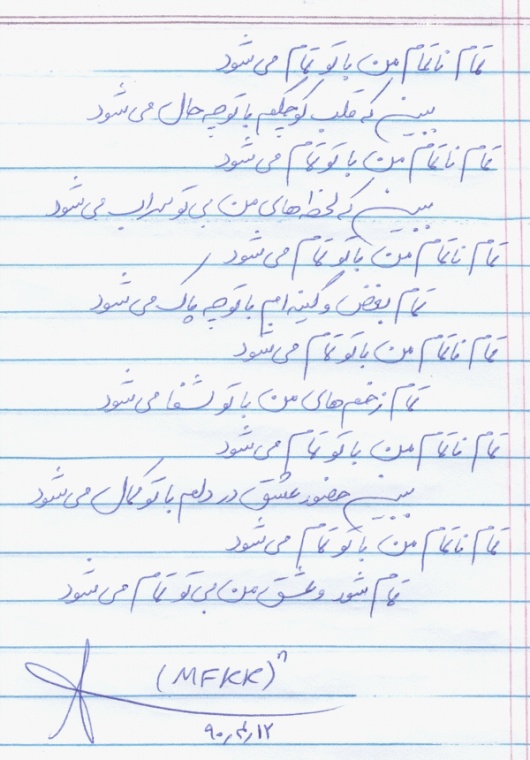 تمام ناتمام من با تو تمام می‌شود
ببین که قلب کوچکم با تو چه حال می‌شود
تمام ناتمام من با تو تمام می‌شود
ببین که لحظه‌های من بی تو سراب می‌شود
تمام ناتمام من با تو تمام می‌شود
تمام بغض و کینه‌ام با تو چه پاک می‌شود
تمام ناتمام من با تو تمام می‌شود
تمام زخم‌های من با تو شفا می‌شود
تمام ناتمام من با تو تمام می‌شود
ببین حضور عشق در دلم با تو کمال می‌شود
تمام ناتمام من با تو تمام می‌شود
تمام شور و عشق من بی تو تمام می‌شود
(MFKK)ⁿ
۹۰٫۴٫۱۲